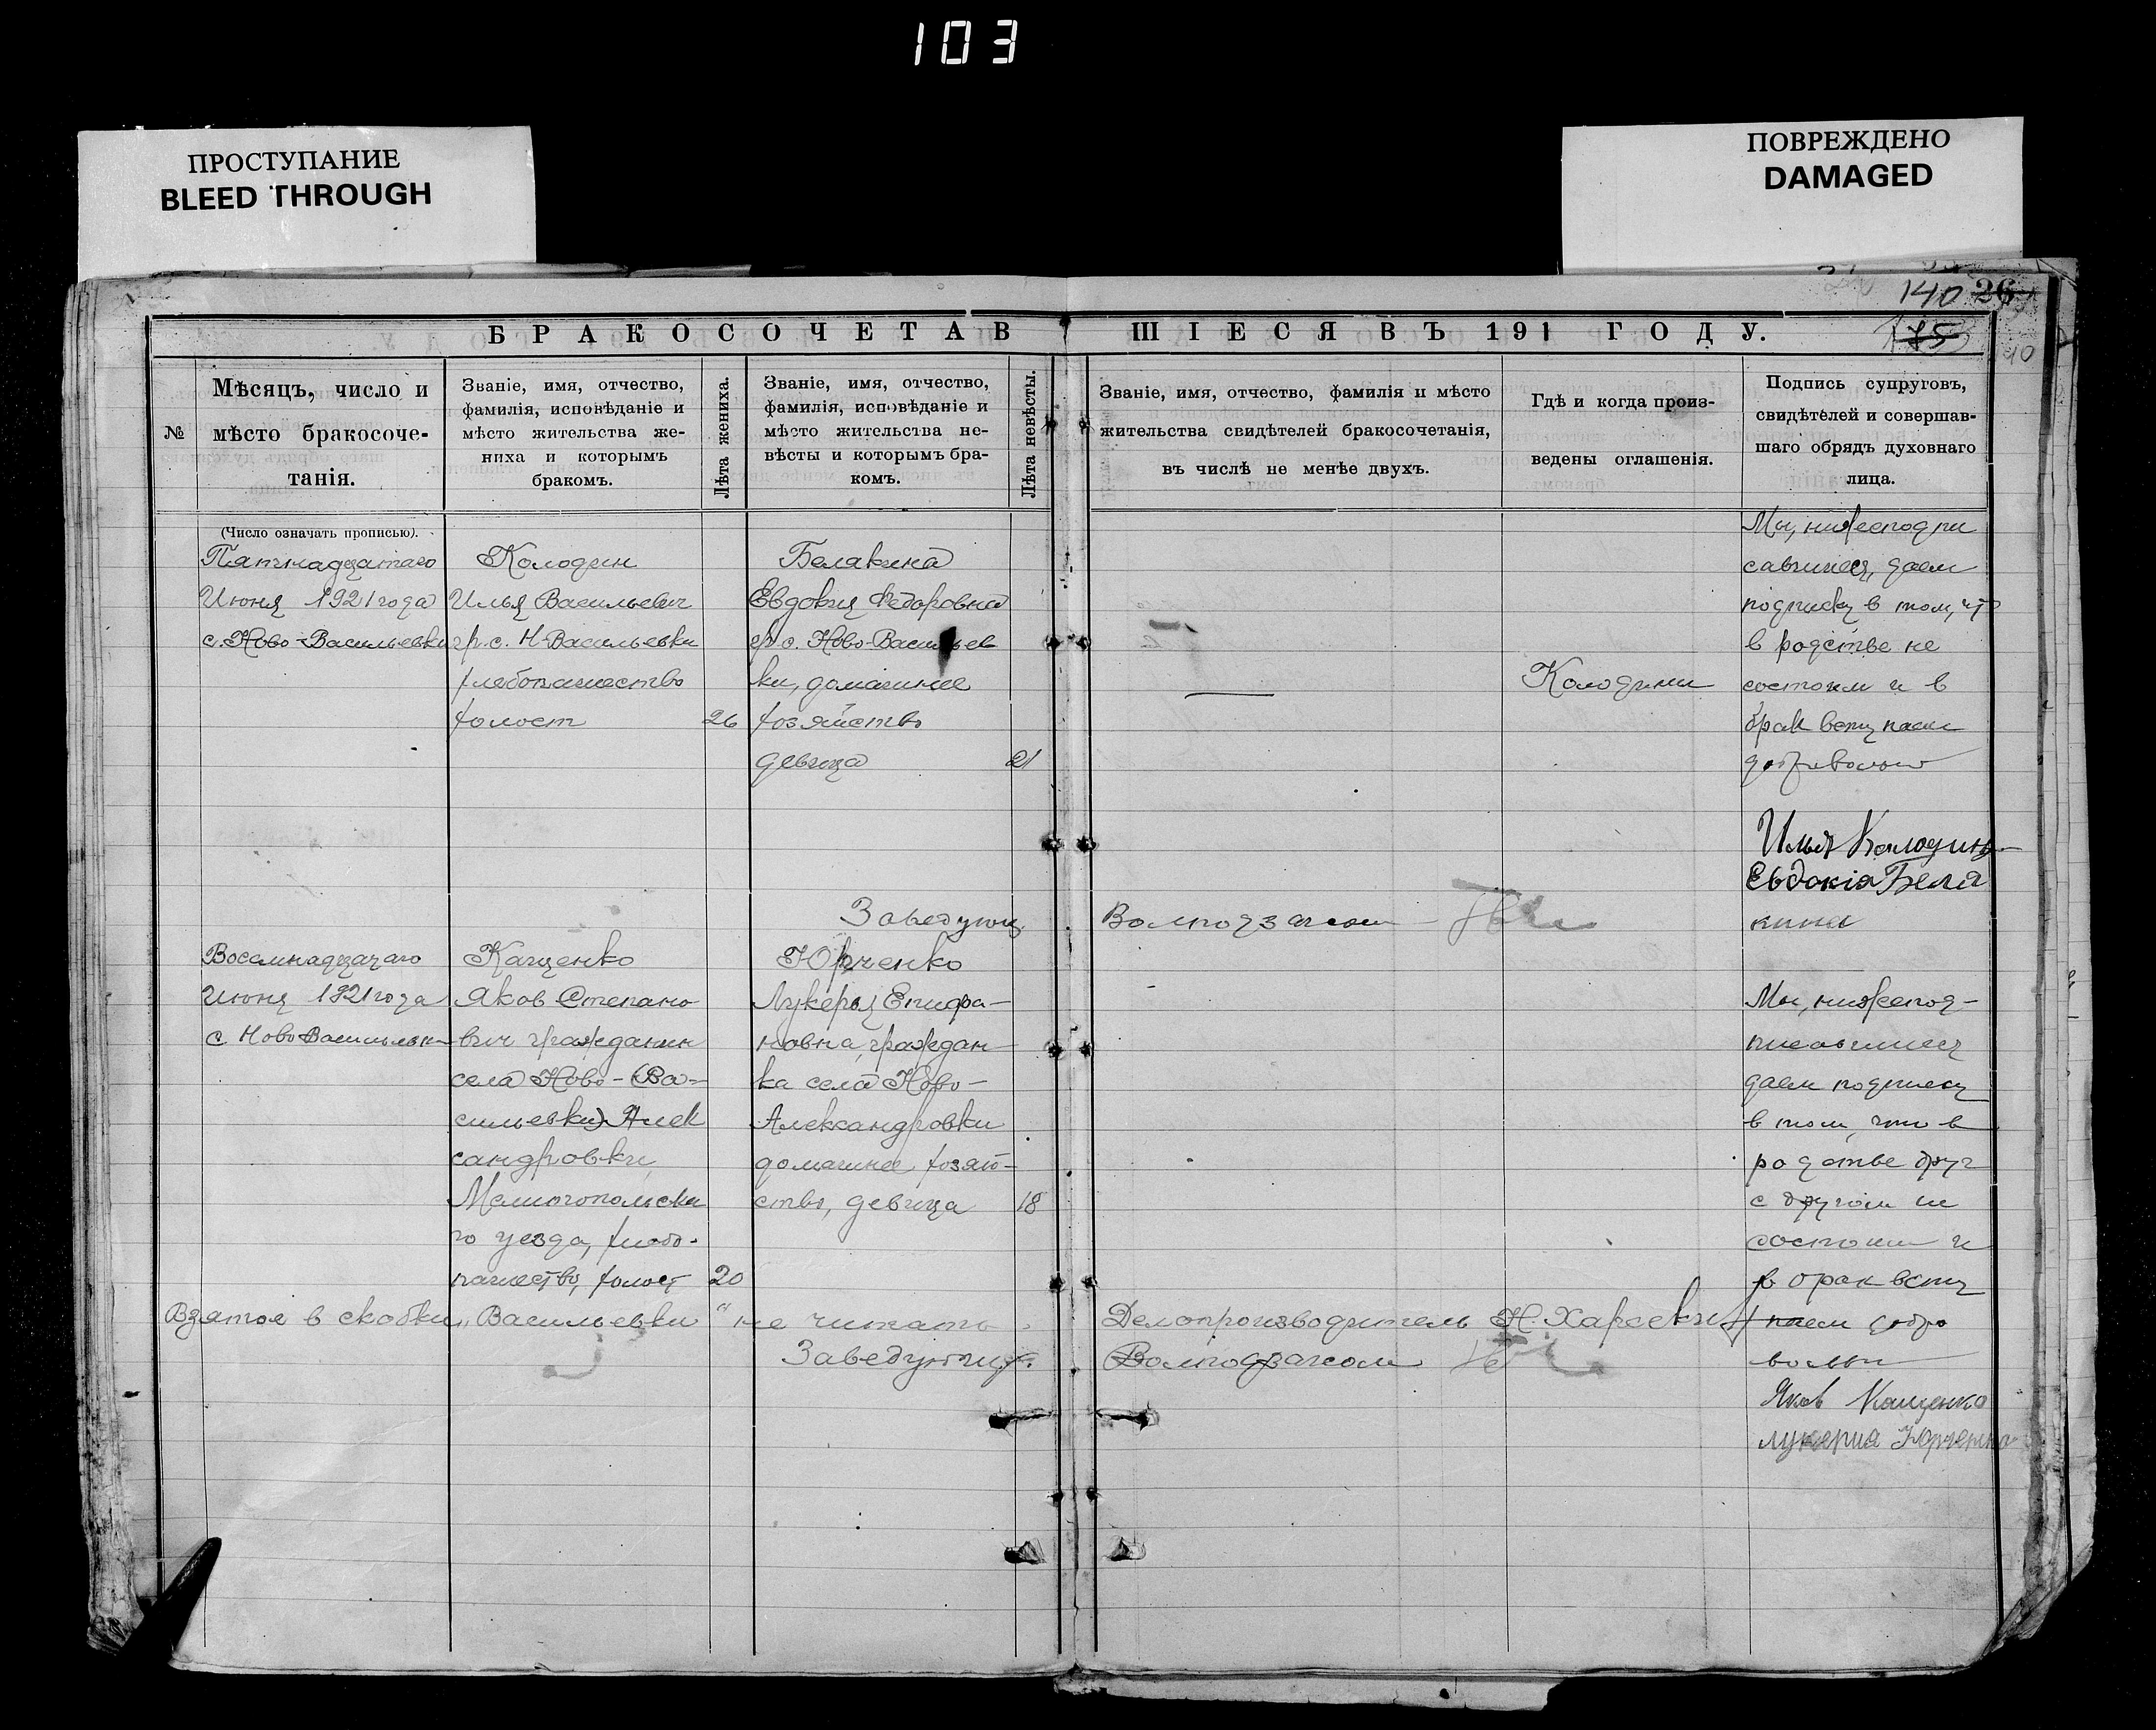 103
ПРОСТУПАНИЕ
BLEED THROUGH
ПОВРЕЖДЕНО
DAMAGED
140 26
75
БРАКОСОЧЕТАВШІЕСЯ ВЪ 191 ГОДУ.
№
Мѣсяцъ, число и
мѣсто бракосоче-
танія.
Званіе, имя, отчество,
фамилія, исповѣданіе и
мѣсто жительства же-
ниха и которымъ
бракомъ.
Лѣта жениха.
Званіе, имя, отчество,
фамилія, исповѣданіе и
мѣсто жительства не-
вѣсты и которымъ бра-
комъ.
Лѣта невѣсты.
Званіе, имя, отчество, фамилія и мѣсто
жительства свидѣтелей бракосочетанія,
въ числѣ не менѣе двухъ.
Гдѣ и когда произ-
ведены оглашенія.
Подпись супруговъ,
свидѣтелей и совершав-
шаго обрядъ духовнаго
лица.
(Число означать прописью).
Пятнадцатаго
Июня 1921 года
с. Ново-Васильевки
Колодин
Илья Васильевич
гр. с. Н-Васильевки
хлебопашество
холост
26
Белакина
Евдокия Федоровна
гр. с. Ново-Васильев
ки, домашнее
хозяйство
девица
21
Колодини
Мы, нижеподпи
савшиеся, даем
подписку в том, что
в родстве не
состоим и в
брак вступаем
добровольно
Илья Колодинъ
Евдокія Беля
кина
Заведующ. Волподзагсом
Восемнадцатаго
Июня 1921 года
с. Ново-Васильевк
Кащенко
Яков Степано
вич гражданин
села Ново-(Ва-
сильевки) Алек
сандровки,
Мелитопольска
го уезда, хлебо-
пашество, холост
20
Юрченко
Лукерья Епифа-
новна, граждан
ка села Ново-
Александровки
домашнее хозяй-
ство, девица
18
Мы, нижепод-
писавшиеся
даем подписку
в том, что в
родстве друг
с другом не
состоим и
в брак всту
паем добро
вольно
Яков Кащенко
лукерия Юрченко
Взятое в скобки „Васильевки“ не читать.
Делопроизводитель Н.
Заведующ. Волподзагсом